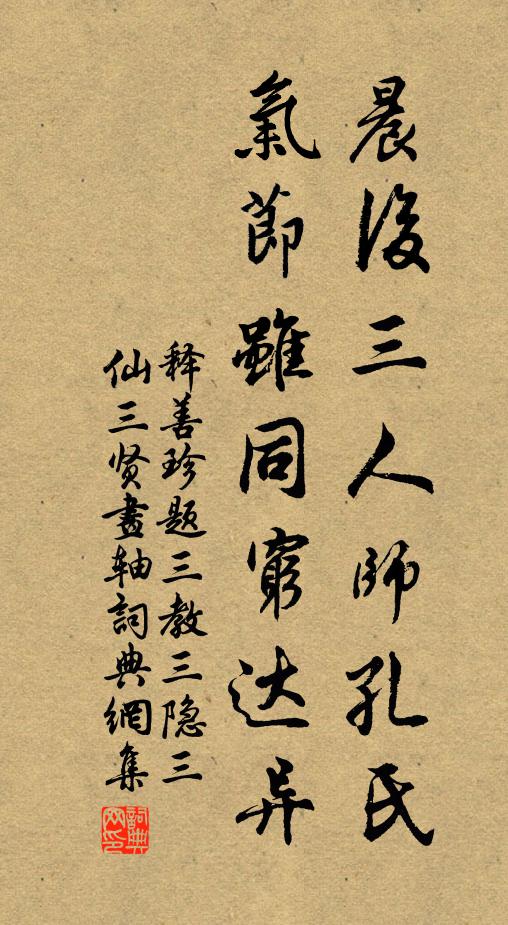 晨後三人師孔氏
氣節雖同窮达异
释善珍题三教三隐三
仙三贤畫軸詞典網集
詞典網印